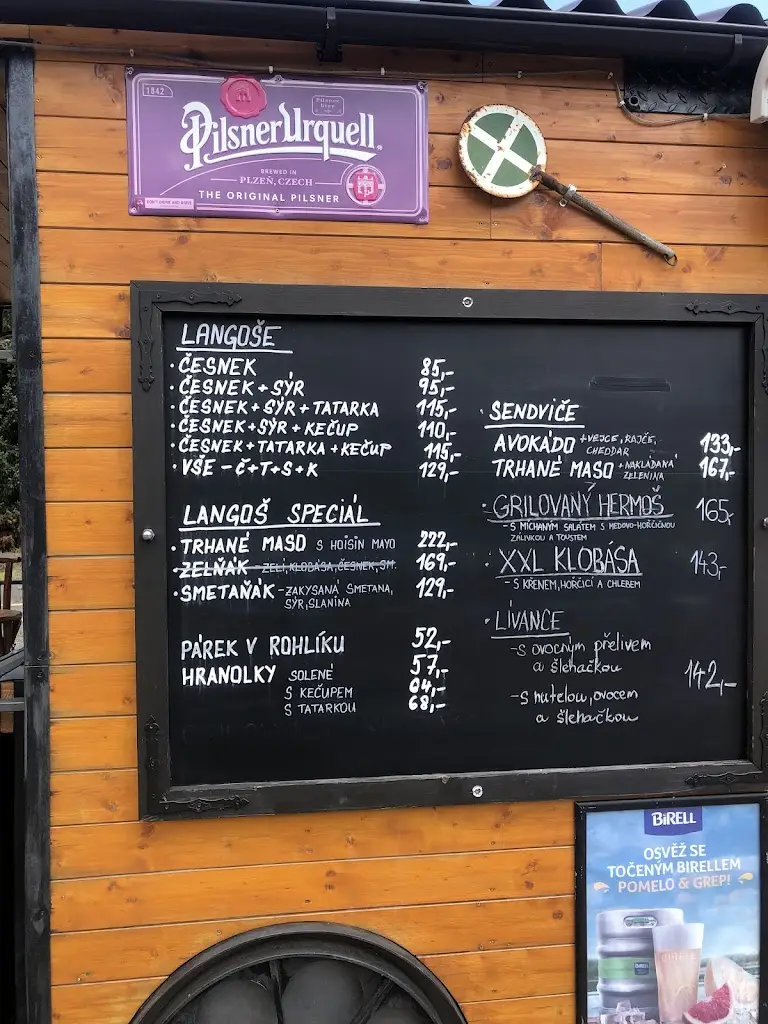 1842
Pilsner Urquell
BREWED IN
PLZEŇ, CZECH
THE ORIGINAL PILSNER
LANGOŠE
· ČESNEK 85,-
· ČESNEK + SÝR 95,-
· ČESNEK + SÝR + TATARKA 115,-
· ČESNEK + SÝR + KEČUP 110,-
· ČESNEK + TATARKA + KEČUP 115,-
· VŠE - Č+T+S+K 129,-
LANGOŠ SPECIÁL
· TRHANÉ MASO S HOISIN MAYO 222,-
· ZELŇÁK - ZELÍ, KLOBÁSA, ČESNEK, SM. 169,-
· SMETAŇÁK - ZAKYSANÁ SMETANA, 129,-
SÝR, SLANINA
PÁREK V ROHLÍKU 52,-
HRANOLKY SOLENÉ 57,-
S KEČUPEM 64,-
S TATARKOU 68,-
· SENDVIČE
AVOKÁDO + VEJCE, RAJČE, 133,-
CHEDDAR
TRHANÉ MASO + NAKLÁDANÁ 167,-
ZELENINA
· GRILOVANÝ HERMOŠ 165,-
- S MÍCHANÝM SALÁTEM S MEDOVO-HOŘČIČNOU
ZÁLIVKOU A TOUSTEM
· XXL KLOBÁSA 143,-
- S KŘENEM, HOŘČICÍ A CHLEBEM
· LÍVANCE
- s ovocným přelivem
a šlehačkou
142,-
- s nutelou, ovocem
a šlehačkou
BIRELL
OSVĚŽ SE
TOČENÝM BIRELLEM
POMELO & GREP!